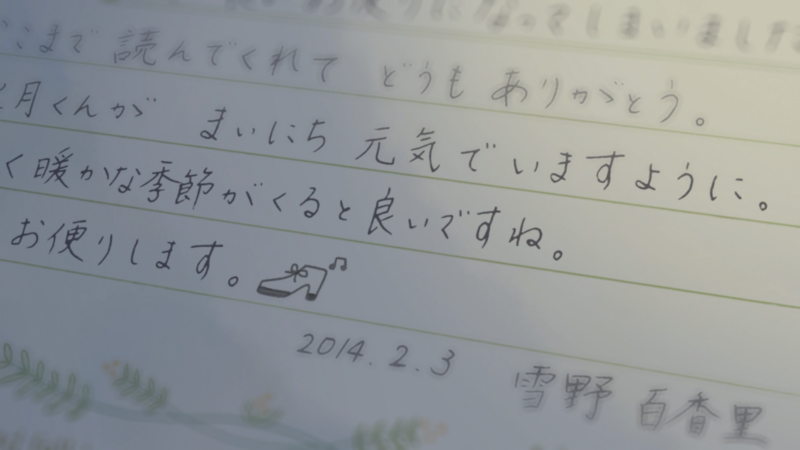 になってしまいました
ここまで読んでくれて どうも ありがとう。
月くんが まいにち 元気でいますように。
く暖かな季節がくると良いですね。
お便りします。
2014.2.3 雪野 百香里